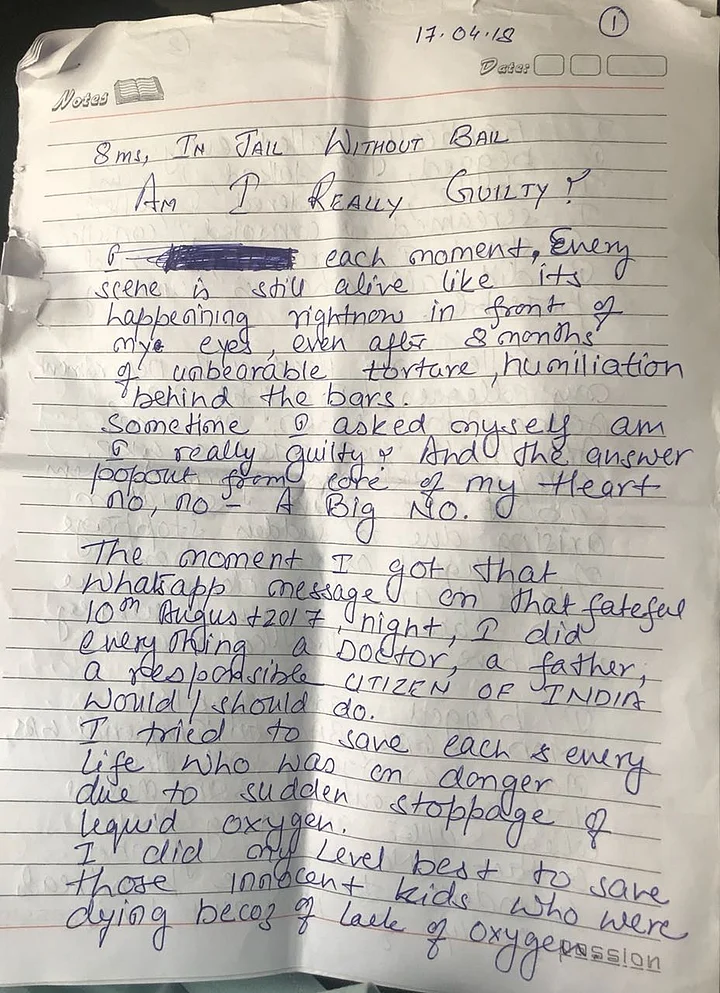 17.04.18 1
Date:
Notes
8ms, IN JAIL WITHOUT BAIL
AM I REALLY GUILTY?
I each moment, Every
scene is still alive like its
happenning rightnow in front of
my eyes, even after 8 months
of unbearable torture, humiliation
behind the bars.
Sometime I asked myself am
I really guilty? And the answer
popout from core of my Heart
no, no - A Big NO.
The moment I got that
Whatsapp message on that fateful
10th August 2017, night, I did
everything a Doctor, a father,
a responsible CITIZEN OF INDIA
would/should do.
I tried to save each & every
life who was in danger
due to sudden stoppage of
liquid oxygen.
I did my level best to save
those innocent kids who were
dying becoz of lack of oxygen.
passion